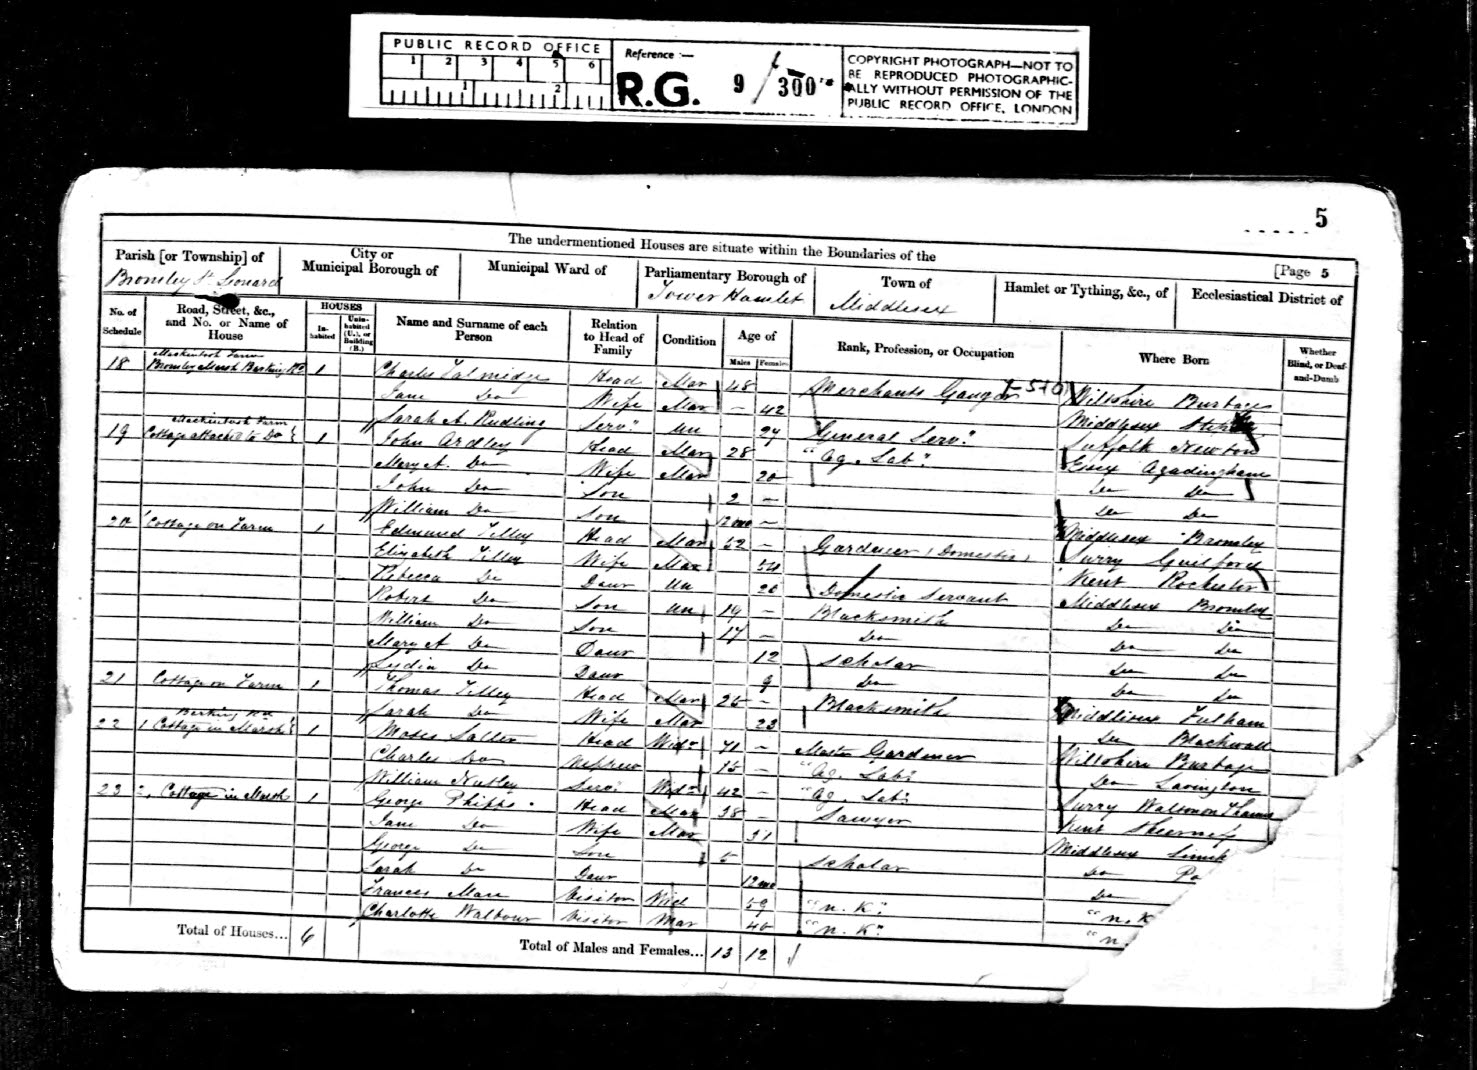 PUBLIC RECORD OFFICE
1 2 3 4 5 6
1 2
Reference :—
R.G. 9 / 300
COPYRIGHT PHOTOGRAPH—NOT TO
BE REPRODUCED PHOTOGRAPHIC-
ALLY WITHOUT PERMISSION OF THE
PUBLIC RECORD OFFICE, LONDON
5
The undermentioned Houses are situate within the Boundaries of the
[Page 5
Parish [or Township] of
Bromley St Leonard
City or
Municipal Borough of
Municipal Ward of
Parliamentary Borough of
Tower Hamlet
Town of
Middlesex
Hamlet or Tything, &c., of
Ecclesiastical District of
No. of
Schedule
Road, Street, &c.,
and No. or Name of
House
HOUSES
In-
habited
Unin-
habited
(U.), or
Building
(B.)
Name and Surname of each
Person
Relation
to Head of
Family
Condition
Age of
Males Females
Rank, Profession, or Occupation
Where Born
Whether
Blind, or Deaf-
and-Dumb
Mackintosh Farm
18 Bromley Marsh Barking Rd 1 Charles Talmidge Head Mar 48 Merchants Gauger Wiltshire Burbage
Jane Do Wife Mar – 42 Middlesex
Sarah A. Rudling Servt Un 27 General Servt Suffolk Newton
Mackintosh Farm
19 Cottage attached to Do 1 John Ardley Head Mar 28 "Ag. Lab" Essex
Mary A. Do Wife Mar 20 Do Do
John Do Son 2 – Do Do
William Do Son 12 mo – Middlesex Bromley
20 Cottage on Farm 1 Edmund Tilley Head Mar 52 – Gardener (Domestic) Surry Guilford
Elizabeth Tilley Wife Mar 54 Kent Rochester
Rebecca Do Daur Un 20 Domestic Servant Middlesex Bromley
Robert Do Son Un 19 – Blacksmith Do Do
William Do Son 17 – Do Do Do
Mary A Do Daur 12 Scholar Do Do
Lydia Do Daur 9 Do Do Do
21 Cottage on Farm 1 Thomas Tilley Head Mar 25 – Blacksmith Middlesex Fulham
Sarah Do Wife Mar 23 Do Blackwall
Barking Rd
22 1 Cottage in Marsh 1 Moses Salter Head Widr 71 – Master Gardener Wiltshire Burbage
Charles Do Nephew 15 – "Ag. Lab" Do Lavington
William Nutley Servt Widr 42 – "Ag. Lab" Surry Walton on Thames
23 2, Cottage in Marsh 1 George Phipps Head Mar 38 – Sawyer Kent Sheerness
Jane Do Wife Mar 31 Middlesex
George Do Son 5 Scholar Do
Sarah Do Daur 12 mo Do
Frances Mare Visitor Wid 59 "n. K" "n. K
Charlotte Walbour Visitor Mar 40 "n. K" "n.
Total of Houses... 6
Total of Males and Females... 13 12